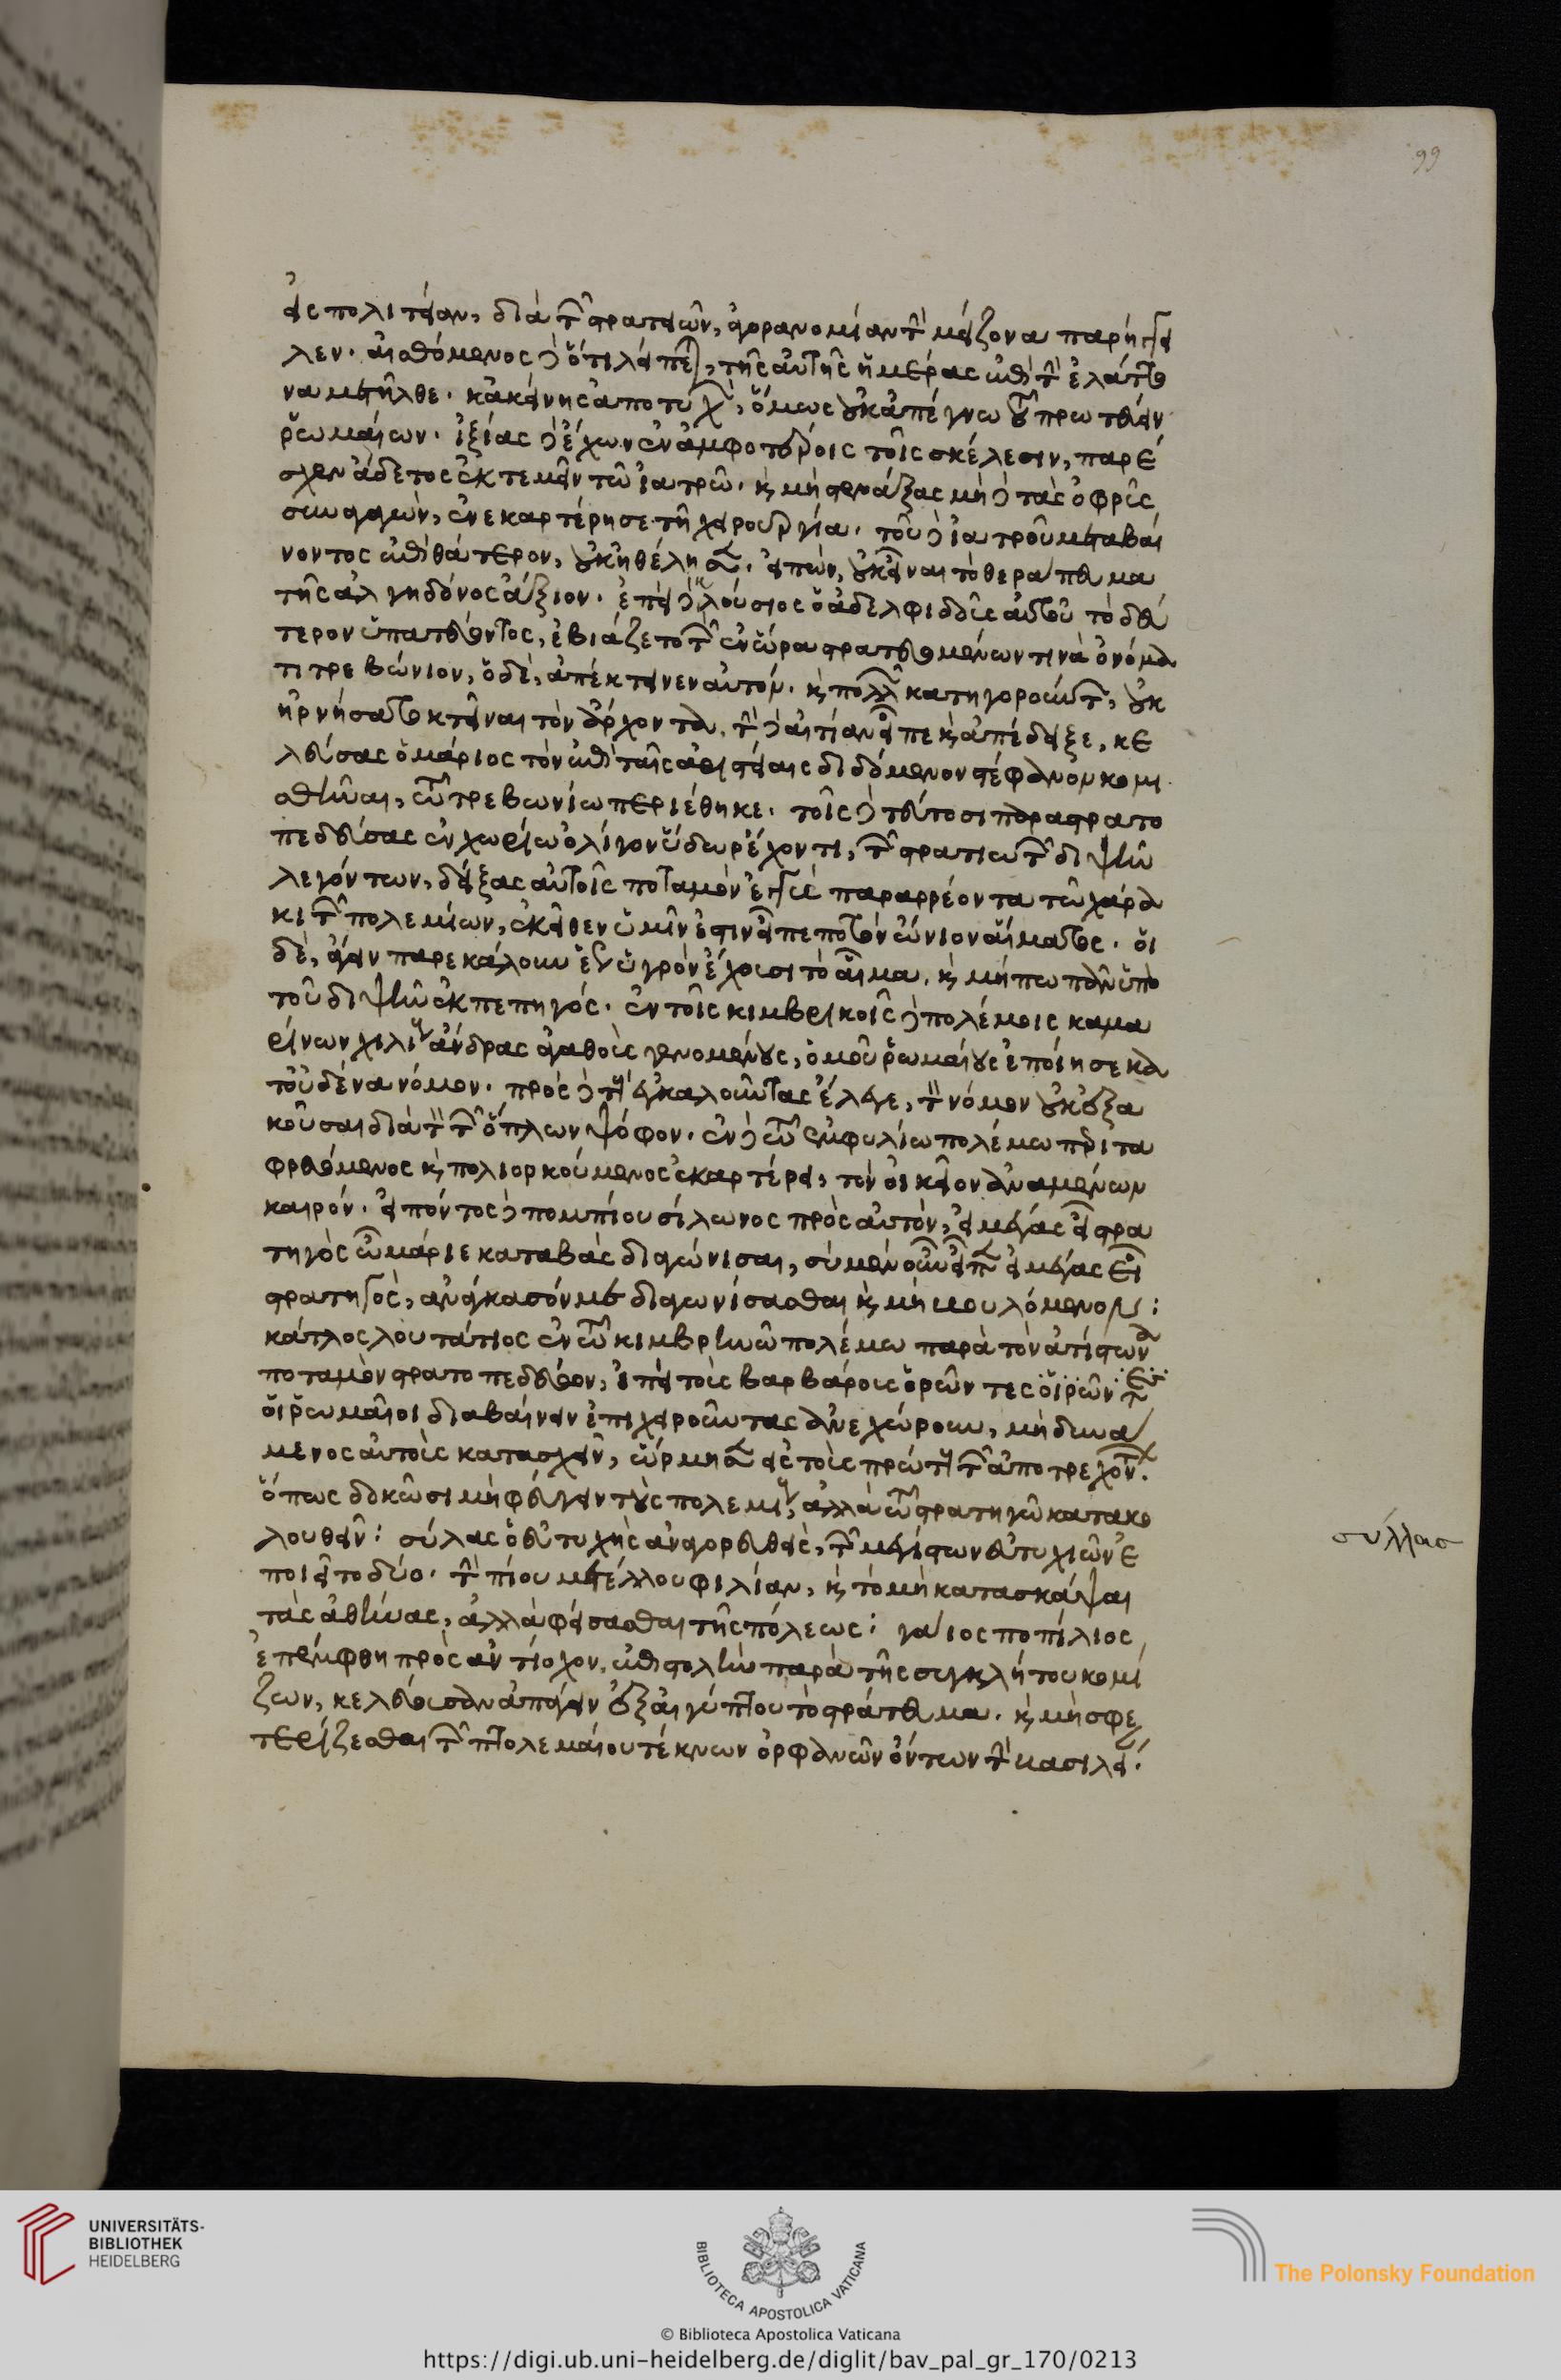 99
εἰς πολιτείαν, διὰ τῶν στρατειῶν, ἀγορανομίαν τὴν μείζονα παρήγγει
λεν. αἰσθόμενος δὲ ὅτι λείπεται, τῆς αὐτῆς ἡμέρας ἐπὶ τὴν ἐλάττο
να μετῆλθε. κἀκείνης ἀποτυχὼν, ὅμως οὐκ ἀπέγνω τοῦ πρωτεύειν
ῥωμαίων. ἰξίας δὲ ἔχων ἐν ἀμφοτέροις τοῖς σκέλεσιν, παρέ
σχεν ἄδετος ἐκτεμεῖν τῶ ἰατρῶ. καὶ μὴ στενάξας μὴ δὲ τὰς ὀφρῦς
συναγαγὼν, ἐνεκαρτέρησε τῆ χειρουργία. τοῦ δὲ ἰατροῦ μεταβαί
νοντος ἐπὶ θάτερον, οὐκ ἠθέλησεν. εἰπὼν, οὐκ εἶναι τὸ θεράπευμα
τῆς ἀλγηδόνος ἄξιον. ἐπεὶ δὲ λούσιος ὁ ἀδελφιδοῦς αὐτοῦ τὸ δεύ
τερον ὑπατεύοντος, ἐβιάζετο τῶν ἐν ὥρα στρατευομένων τινὰ ὀνόμα
τι τρεβώνιον, ὁ δὲ, ἀπέκτεινεν αὐτόν. καὶ πολλῶν κατηγορούντων, οὐκ
ἠρνήσατο κτεῖναι τὸν ἄρχοντα, τὴν δὲ αἰτίαν εἶπε καὶ ἀπέδειξε, κε
λεύσας ὁ μάριος τὸν ἐπὶ ταῖς ἀριστείαις διδόμενον στέφανον κομι
σθῆναι, τῶ τρεβωνίω περιέθηκε. τοῖς δὲ τεύτοσι παραστρατο
πεδεύσας ἐν χωρίω ὀλίγον ὕδωρ ἔχοντι, τῶν στρατιωτῶν διψῆν
λεγόντων, δείξας αὐτοῖς ποταμὸν ἐγγὺς παραρρέοντα τῶ χάρα
κι τῶν πολεμίων, ἐκεῖθεν ὑμῖν ἐστιν εἶπε ποτὸν ὤνιον αἵματος. οἱ
δὲ, ἄγειν παρεκάλουν ἕως ὑγρὸν ἔχουσι τὸ αἷμα, καὶ μήπω πᾶν ὑπὸ
τοῦ διψῆν ἐκπεπηγός. ἐν τοῖς κιμβρικοῖς δὲ πολέμοις καμα
ρίνων χιλίους ἄνδρας ἀγαθοὺς γενομένους, ὁμοῦ ῥωμαίους ἐποίησε κα
τ' οὐδένα νόμον. πρὸς δὲ τοὺς ἐγκαλοῦντας ἔλεγε, τῶν νόμων οὐκ ἐξα
κοῦσαι διὰ τὸν τῶν ὅπλων ψόφον. ἐν δὲ τῶ ἐμφυλίω πολέμω περιτα
φρευόμενος καὶ πολιορκούμενος ἐκαρτέρει, τὸν οἰκεῖον ἀναμένων
καιρόν. εἰπόντος δὲ πομπίου σίλωνος πρὸς αὐτὸν, εἰ μέγας εἶ στρα
τηγὸς ὦ μάριε καταβὰς διαγώνισαι, σὺ μὲν οὖν εἶπεν εἰ μέγας εἶ
στρατηγὸς, ἀνάγκασόν με διαγωνίσασθαι καὶ μὴ βουλόμενον:
κάτλος λουτάτιος ἐν τῶ κιμβρικῶ πολέμω παρὰ τὸν ἀτίσωνα
ποταμὸν στρατοπεδεύων, ἐπεὶ τοὺς βαρβάρους ὁρῶντες οἱ ῥω
οἱ ῥωμαῖοι διαβαίνειν ἐπιχειροῦντας ἀνεχώρουν, μὴ δυνά
μενος αὐτοὺς κατασχεῖν, ὥρμησεν εἰς τοὺς πρώτους τῶν ἀποτρεχόντων.
ὅπως δοκῶσι μὴ φεύγειν τοὺς πολεμίους, ἀλλὰ τῶ στρατηγῶ κατακο
λουθεῖν: σύλας ὁ εὐτυχὴς ἀναγορευθεὶς, τῶν μεγίστων εὐτυχιῶν ἐ
ποιεῖτο δύο. τὴν πίου μετέλλου φιλίαν, καὶ τὸ μὴ κατασκάψαι
τὰς ἀθήνας, ἀλλὰ φείσασθαι τῆς πόλεως: γάιος ποπίλιος
ἐπέμφθη πρὸς ἀντίοχον, ἐπιστολὴν παρὰ τῆς συγκλήτου κομί
ζων, κελεύουσαν ἀπάγειν ἐξ αἰγύπτου τὸ στράτευμα. καὶ μὴ σφε
τερίζεσθαι τῶν πτολεμαίου τέκνων ὀρφανῶν ὄντων τὴν βασιλεί.
σύλλασ
UNIVERSITÄTS-
BIBLIOTHEK
HEIDELBERG
BIBLIOTECA APOSTOLICA VATICANA
The Polonsky Foundation
© Biblioteca Apostolica Vaticana
https://digi.ub.uni-heidelberg.de/diglit/bav_pal_gr_170/0213